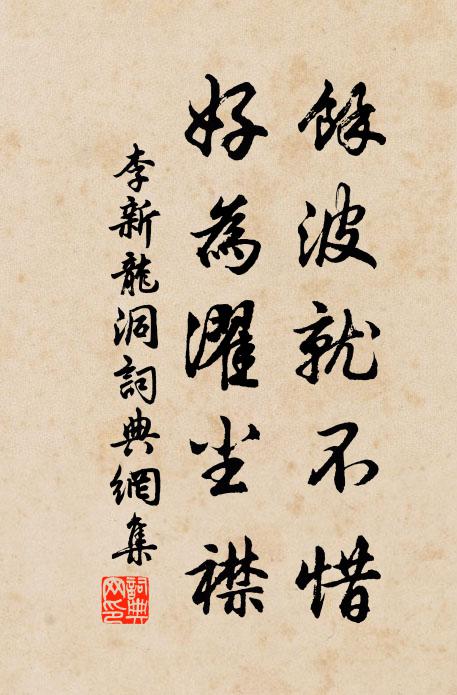 餘波就不惜
好為濯尘襟
李新龍洞詞典網集
詞典网印